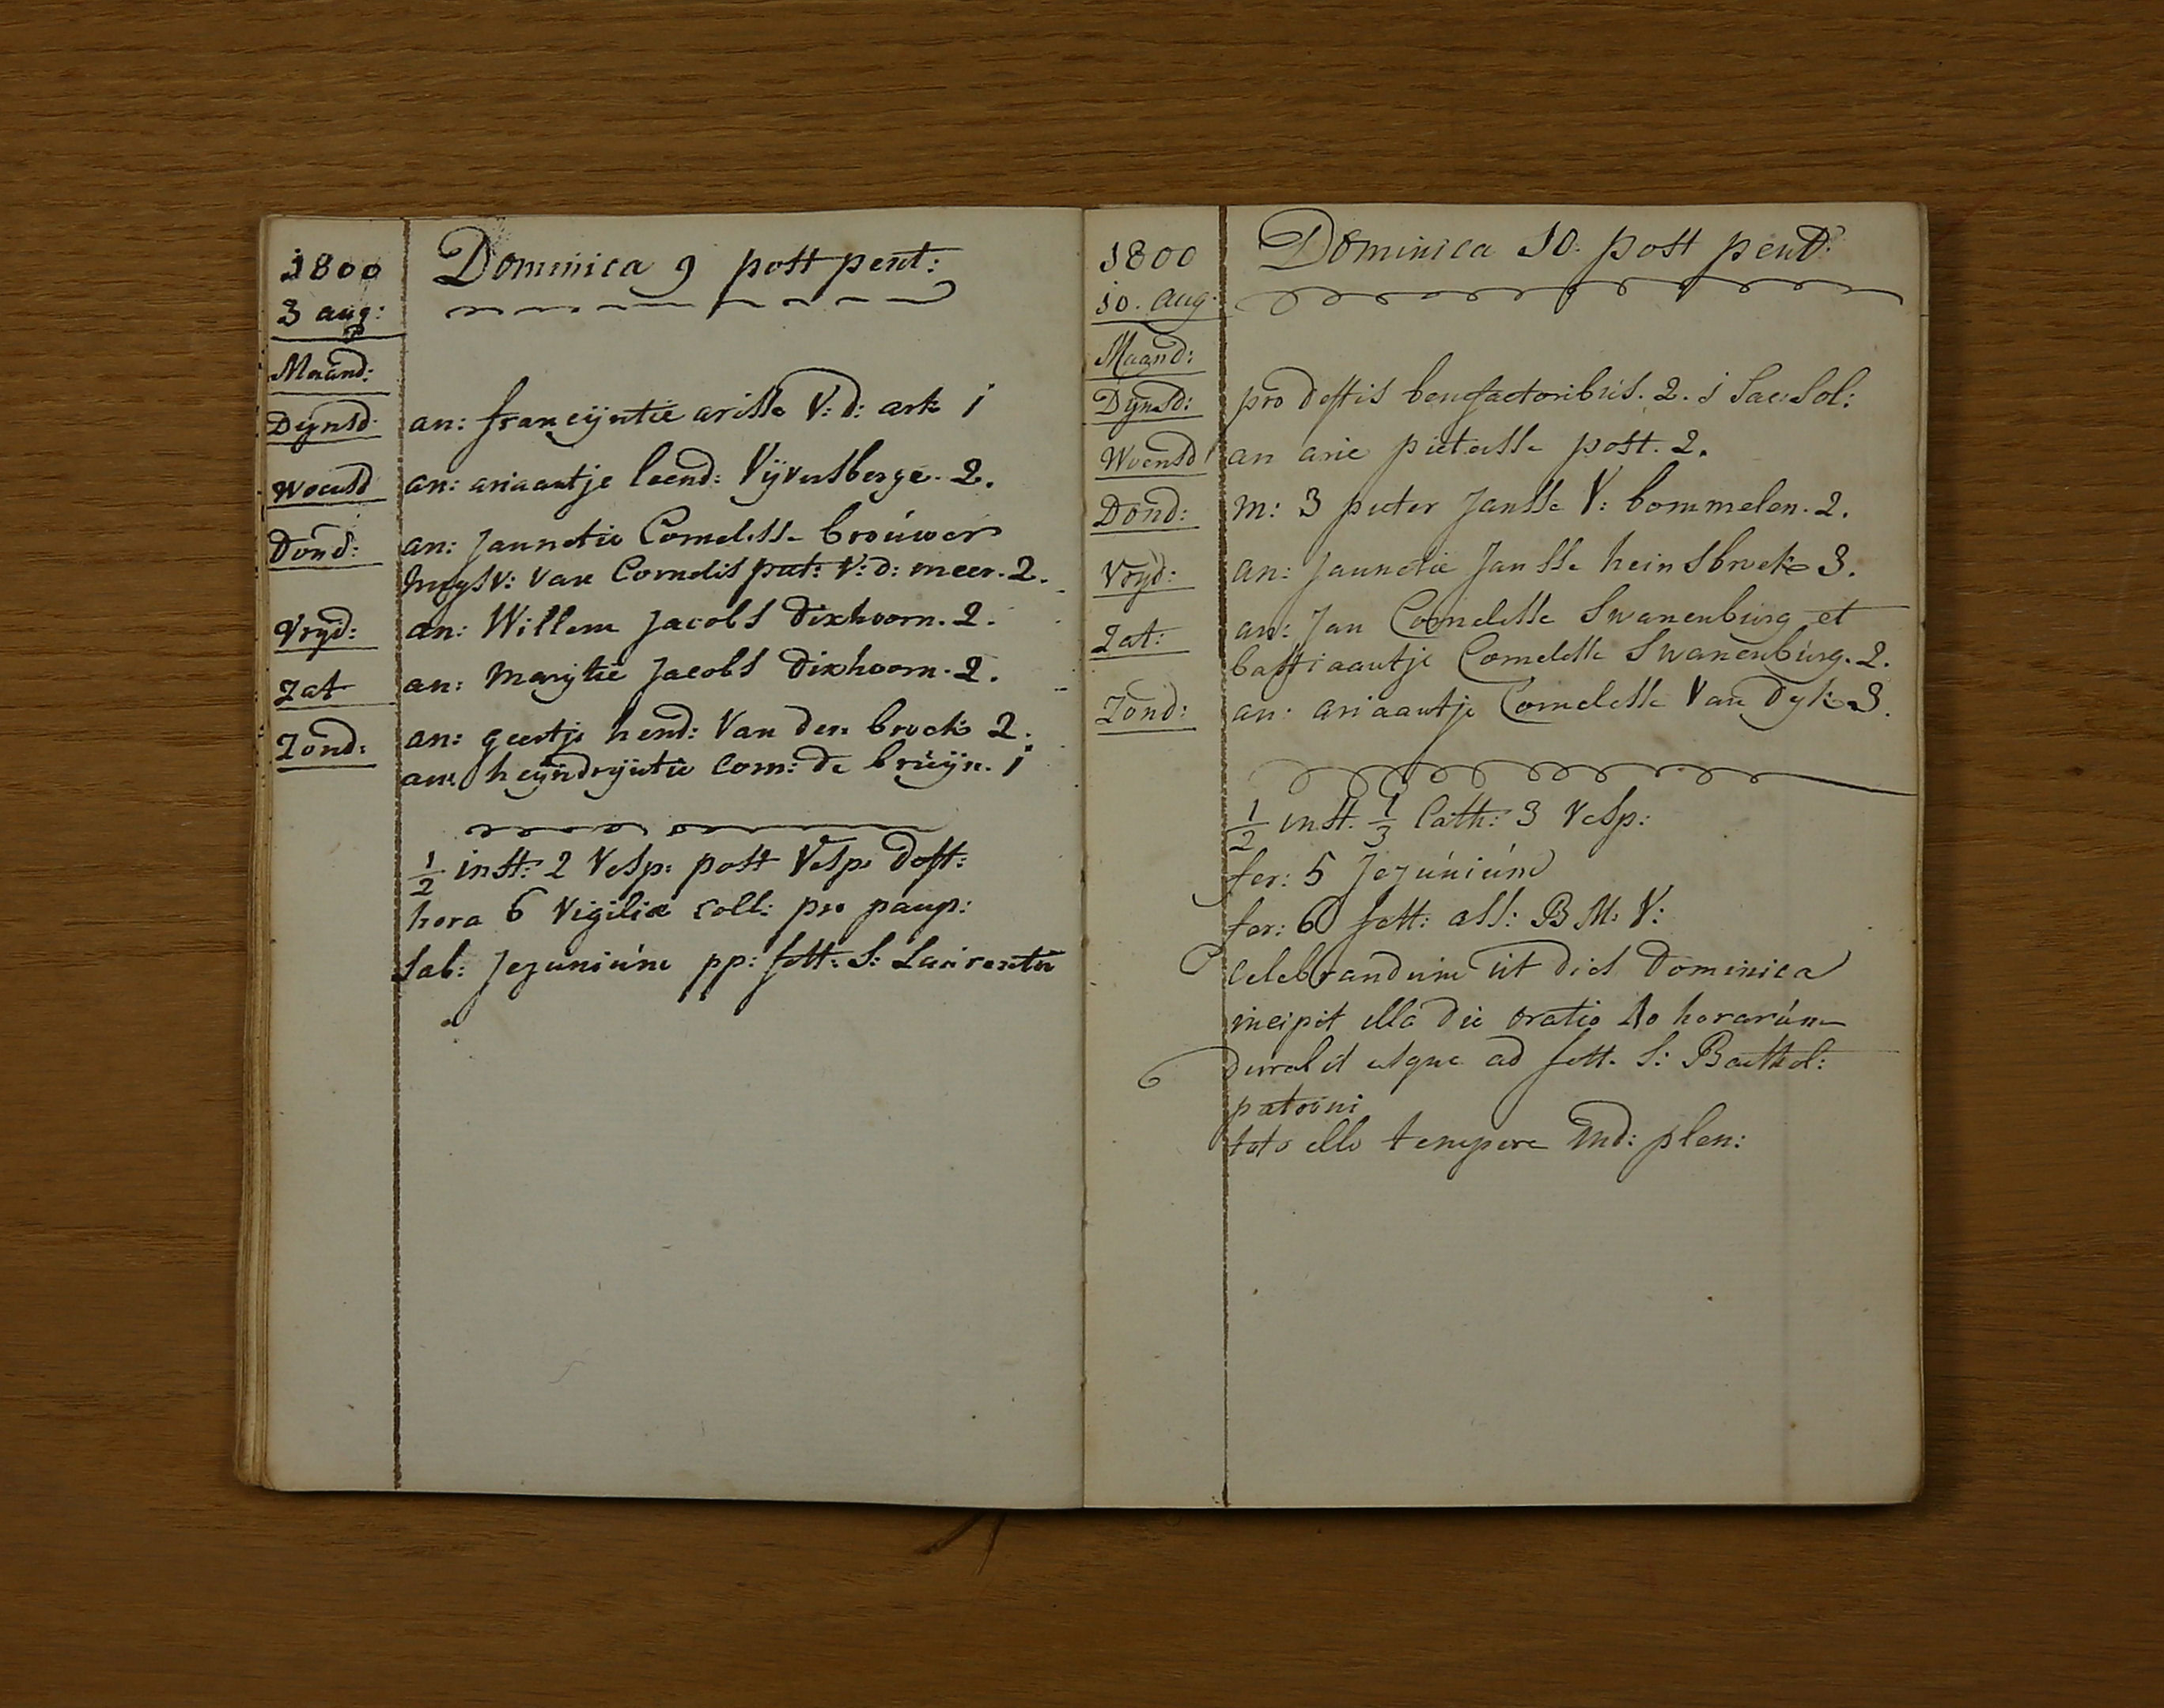 1800
3 aug:
Dominica 9 post pent:
Maand:
Dijnsd: an: francijntie arisse V: d: ark 1
Woensd an: ariaantje leend: Vijversberge. 2.
Dond: an: Jannetie Cornelisse brouwer
huysv: van Cornelis piet: V: d: meer. 2.
Vryd: an: Willem Jacobs Dixhoorn. 2.
Zat an: Marytie Jacobs Dixhoorn. 2.
Zond: an: geertje hend: Van den broek 2.
an: heyndryntie Corn: de bruyn. 1
1/2 inst: 2 Vesp: post Vesp: deft:
hora 6 Vigiliæ coll: pro paup:
Sab: Jejunium pp: fest: S: Laurentii
1800
10. aug.
Dominica 10. post pent:
Maand:
Dynsd: pro deftis benefactoribus. 2. 1 Sac: Sol:
Woensd an arie pieterse post. 2.
Dond: m: 3 pieter Jansse V: bommelen. 2.
Vryd: an: Jannetie Jansse heinsbroek 3.
Zat: an: Jan Cornelisse Swanenburg et
bastiaantje Cornelisse Swanenburg. 2.
Zond: an: ariaantje Cornelisse Van Dyk 3.
1/2 inst. 1/3 Cath: 3 Vesp:
fer: 5 Jejunium
fer: 6 fest: ass: B M: V:
Celebrandum ut dies Dominica
incipit illa die oratio 40 horarum
durabit usque ad fest. S: Barthol:
patroni
toto illo tempore Ind: plen: